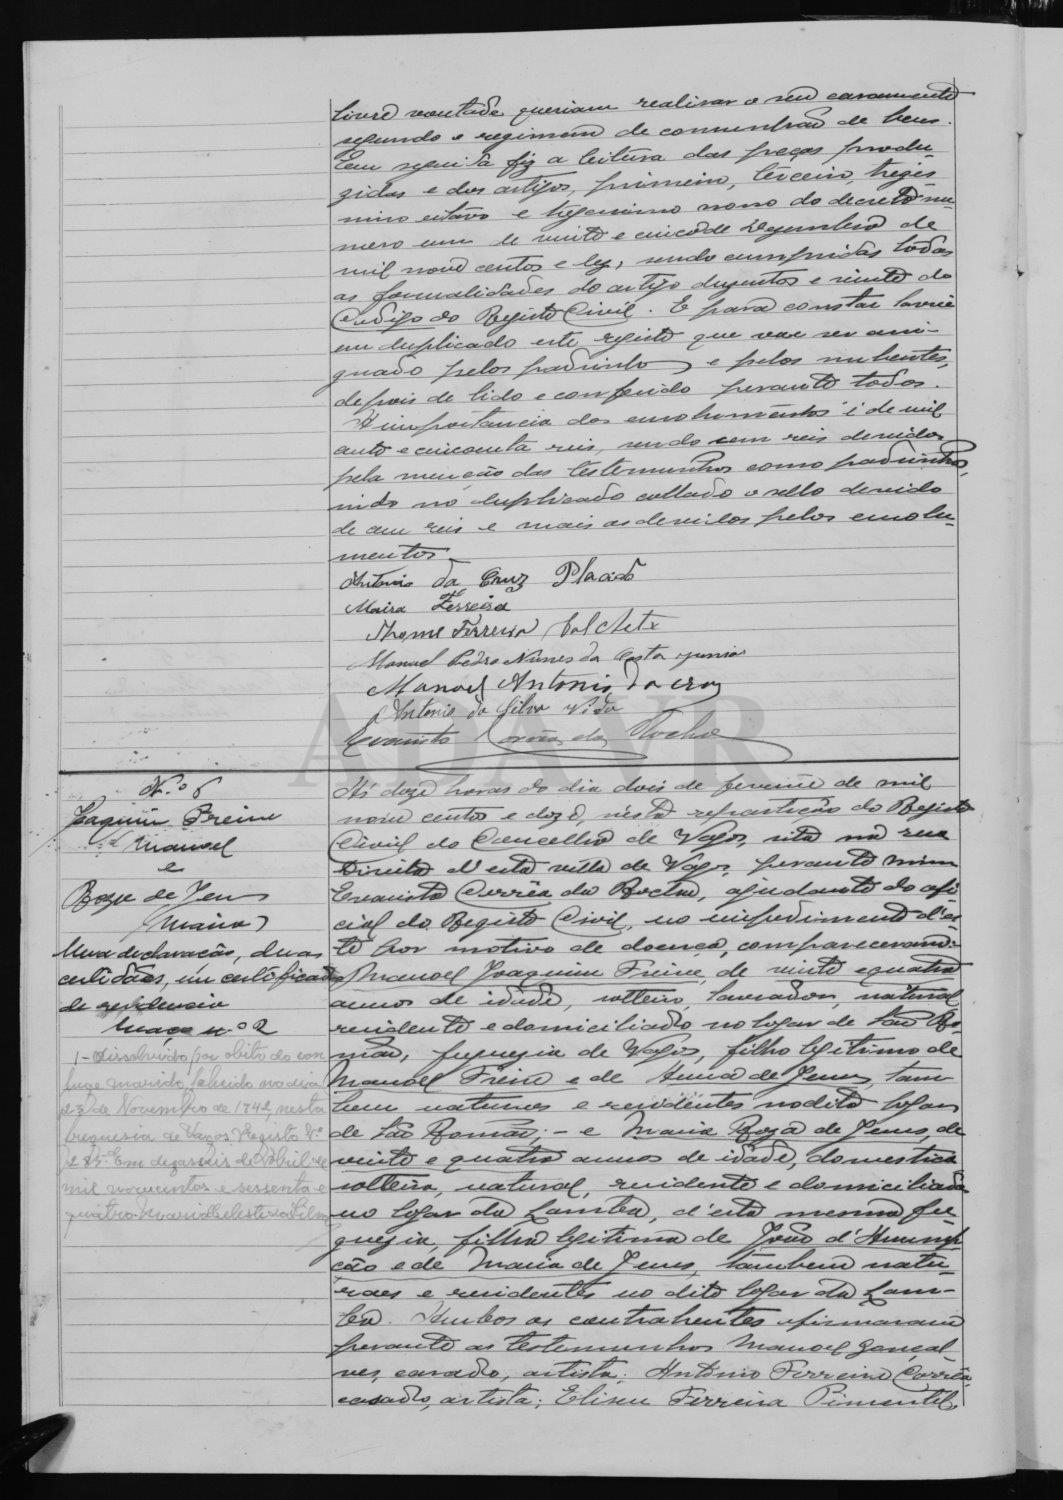 livre vontade queriam realisar o seu casamento
segundo o regimen de comunhão de bens.
Em seguida fiz a leitura das peças produ-
zidas e dos artigos, primeiro, terceiro, trigesi-
mo oitavo e trigesimo nono do decreto nu-
mero um de vinte e cinco de Dezembro de
mil nove centos e dez, sendo cumpridas todas
as formalidades do artigo duzentos e vinte do
Codigo do Registo Civil. E para constar lavrei
em duplicado este registo que vae ser assi-
gnado pelos padrinhos e pelos nubentes,
depois de lido e conferido perante todos.
A importancia dos emolumentos é de mil
cento e cincoenta reis, sendo cem reis devidos
pela menção das testemunhas como padrinhos,
indo no duplicado collado o sello devido
de cem reis e mais os devidos pelos emolu-
mentos.
Antonio da Cruz Placido
Maria Ferreira
Thomé Ferreira
Manuel Pedro Nunes da Costa junior
Manoel Antonio da Cruz
Antonio da Silva Vida
Evaristo Corrêa da Rocha
ADAVR
N.º 6
Joaquim Freire
(Manoel
e
Roza de Jesus
(Maria)
Uma declaração, duas
certidões, um certificado
de residencia
Maço n.º 2
1- Dissolvido por obito do con
juge marido, falecido no dia
23 de Novembro de 1942, nesta
freguesia de Vagos. Registo N.º
235. Em dezasseis de Abril de
mil novecentos e sessenta e
quatro. Maria Celeste Silva
Ás doze horas do dia dois de fevereiro de mil
nove centos e doze, n'esta repartição do Registo
Civil do Concelho de Vagos, sita na rua
Direita d'esta villa de Vagos, perante mim
Evaristo Corrêa da Rocha, ajudante do ofi-
cial do Registo Civil, no impedimento d'es-
te por motivo de doença, compareceram:
Manoel Joaquim Freire, de vinte e quatro
annos de idade, solteiro, lavrador, natural
residente e domiciliado no logar de São Ro-
mão, freguezia de Vagos, filho legitimo de
Manoel Freire e de Anna de Jesus, tam-
bem naturaes e residentes no dito logar
de São Romão; - e Maria Roza de Jesus, de
vinte e quatro annos de idade, domestica
solteira, natural, residente e domiciliada
no logar da Lomba, d'esta mesma fre-
guezia, filha legitima de João d'Assump-
ção e de Maria de Jesus, tambem natu-
raes e residentes no dito logar da Lom-
ba. Ambos os contrahentes afirmaram
perante as testemunhas Manoel Gonçal-
ves, casado, artista; Antonio Ferreira Corrêa,
casado, artista; Eliseu Ferreira Pimentel,